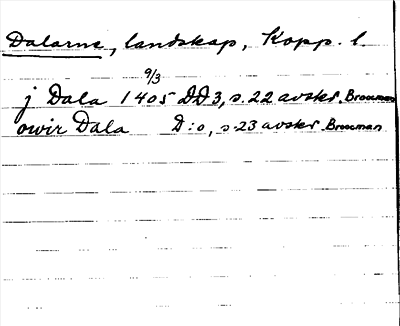 Dalarne, landskap, Kopp. l.
9/3
j Dala 1405 DD3, s.22 avskr. Broocman
owir Dala D:o, s.23 avskr. Broocman